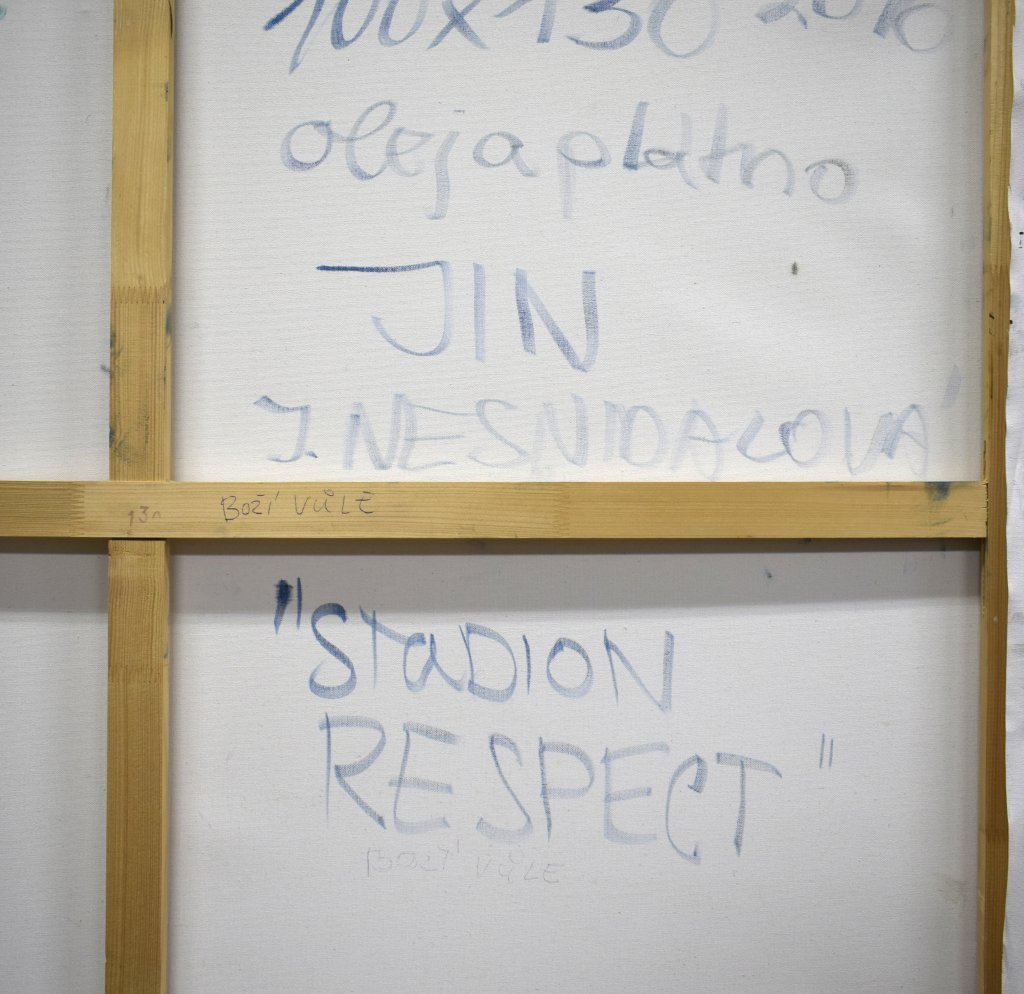 100x130 2016
olej a plátno
JIN
J. NESNÍDALOVÁ
BOŽÍ VŮLE
"STaDION
RESPECT"
BOŽÍ VŮLE